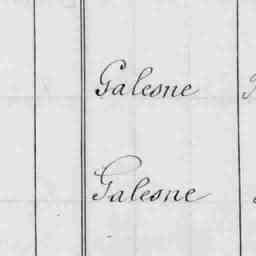 Galesne
Galesne